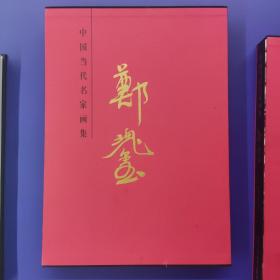 中国当代名家画集
鄭